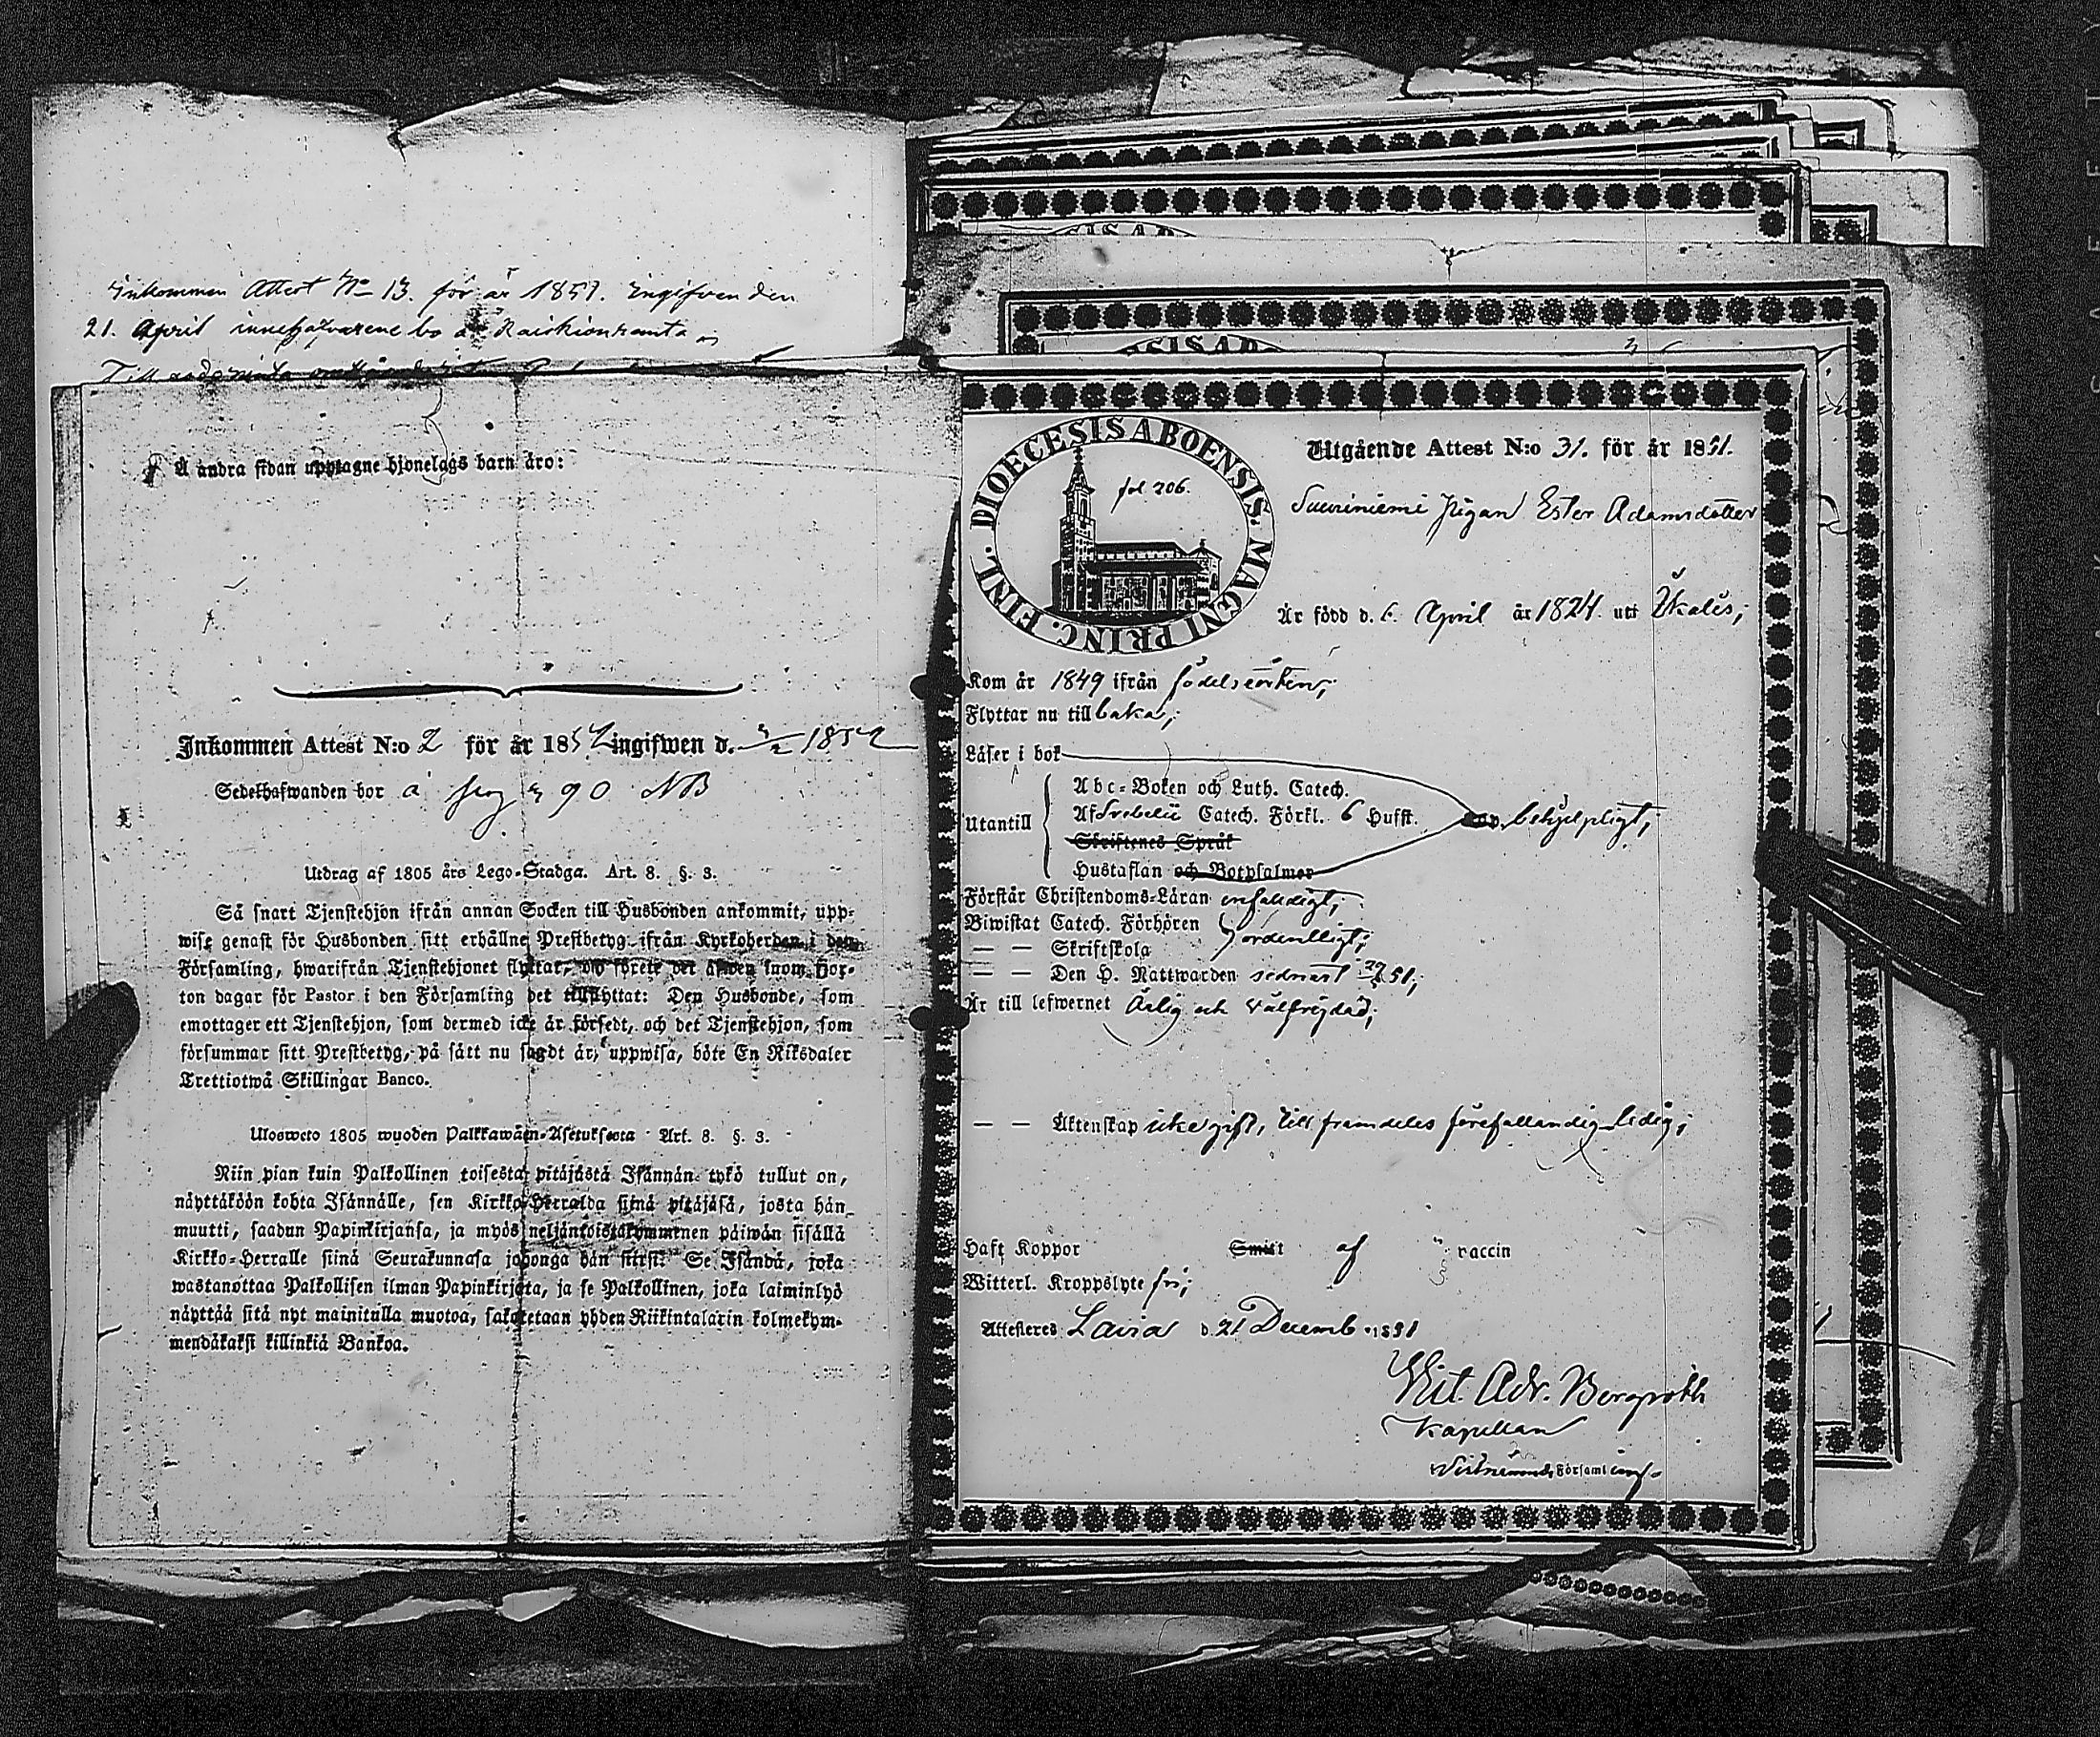 Inkommen Attest No 13. för år 1851. Ingifven den
21. April innehafvarene bo å Raiskionranta
Å andra sidan upptagne hjonelags barn äro:
Inkommen Attest N:o 2 för år 1852 ingifwen d. 3/2 1852
Sedelhafwanden bor å pag 90 NB
Utdrag af 1805 års Lego-Stadga. Art. 8. §. 3.
Så snart Tjenstehjon ifrån annan Socken till Husbonden ankommit, upp-
wise genast för Husbonden sitt erhållne Prestbetyg ifrån Kyrkoherden i den
Församling, hwarifrån Tjenstehjonet flyttar, och förete det äfwen inom fjor-
ton dagar för Pastor i den Församling det tillflyttat: Den Husbonde, som
emottager ett Tjenstehjon, som dermed icke är försedt, och det Tjenstehjon, som
försummar sitt Prestbetyg, på sätt nu sagdt är, uppwisa, böte En Riksdaler
Trettiotwå Skillingar Banco.
Ulosweto 1805 wuoden Palkkawäen-Asetuksesta Art. 8. §. 3.
Niin pian kuin Palkollinen toisesta pitäjästä Isännän tykö tullut on,
näyttäköön kohta Isännälle, sen Kirkko-Herralda siinä pitäjäsä, josta hän
muutti, saadun Papinkirjansa, ja myös neljäntoistakymmenen päiwän sisällä
Kirkko-Herralle siinä Seurakunnasa johonga hän siirsi: Se Isändä, joka
wastanottaa Palkollisen ilman Papinkirjata, ja se Palkollinen, joka laiminlyö
näyttää sitä nyt mainitulla muotoa, sakotetaan yhden Riikintalarin kolmekym-
mendäkaksi killinkiä Bankoa.
DIOECESIS ABOENSIS. MAGNI PRINC. FINL.
fol 206.
Utgående Attest N:o 31. för år 1851.
Suuriniemi Pigan Ester Adamsdotter
Är född d. 6. April år 1824. uti Ikalis;
Kom år 1849 ifrån födelseorten;
Flyttar nu till baka;
Läser i bok
Utantill
Abc-Boken och Luth. Catech.
Af Svebelii Catech. Förkl. 6 Hufst.
behjelpligt;
Skriftenes Språk
Hustaflan och Botpsalmer
Förstår Christendoms-Läran enfaldigt;
Biwistat Catech. Förhören
— — Skriftskola
ordentligt;
— — Den H. Nattwarden sednast 51;
Är till lefwernet Ärlig och välfrejdad;
— — Äktenskap icke gift, till framdeles förefallandig ledig;
Haft Koppor Smitt af vaccin
Witterl. Kroppslyte fri;
Attesteras Lavia d. 21 Decemb. 1851
Wit. Adr. Bergroth
Kapellan
Församling.